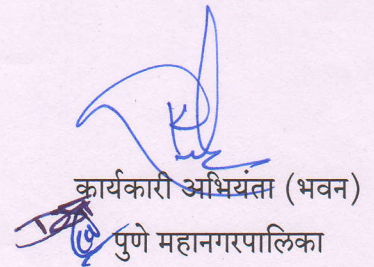 कार्यकारी अभियंता (भवन)
पुणे महानगरपालिका